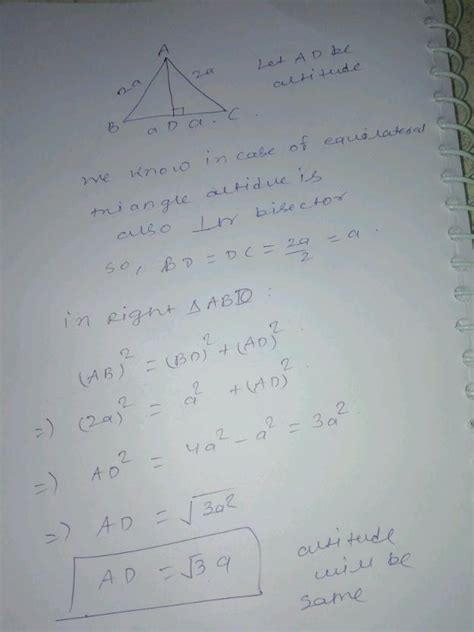 A
2a 2a
B a D a C
Let AD be
altitude
we know in case of equilateral
triangle altidue is
also ⊥r bisector
so, BD = DC = 2a/2 = a.
in Right △ABD:
(AB)² = (BD)² + (AD)²
=) (2a)² = a² + (AD)²
=) AD² = 4a² - a² = 3a²
=) AD = √3a²
AD = √3 a
altitude
will be
same